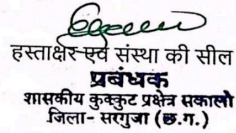 हस्ताक्षर एवं संस्था की सील
प्रबंधक
शासकीय कुक्कुट प्रक्षेत्र सकालो
जिला- सरगुजा (छ.ग.)